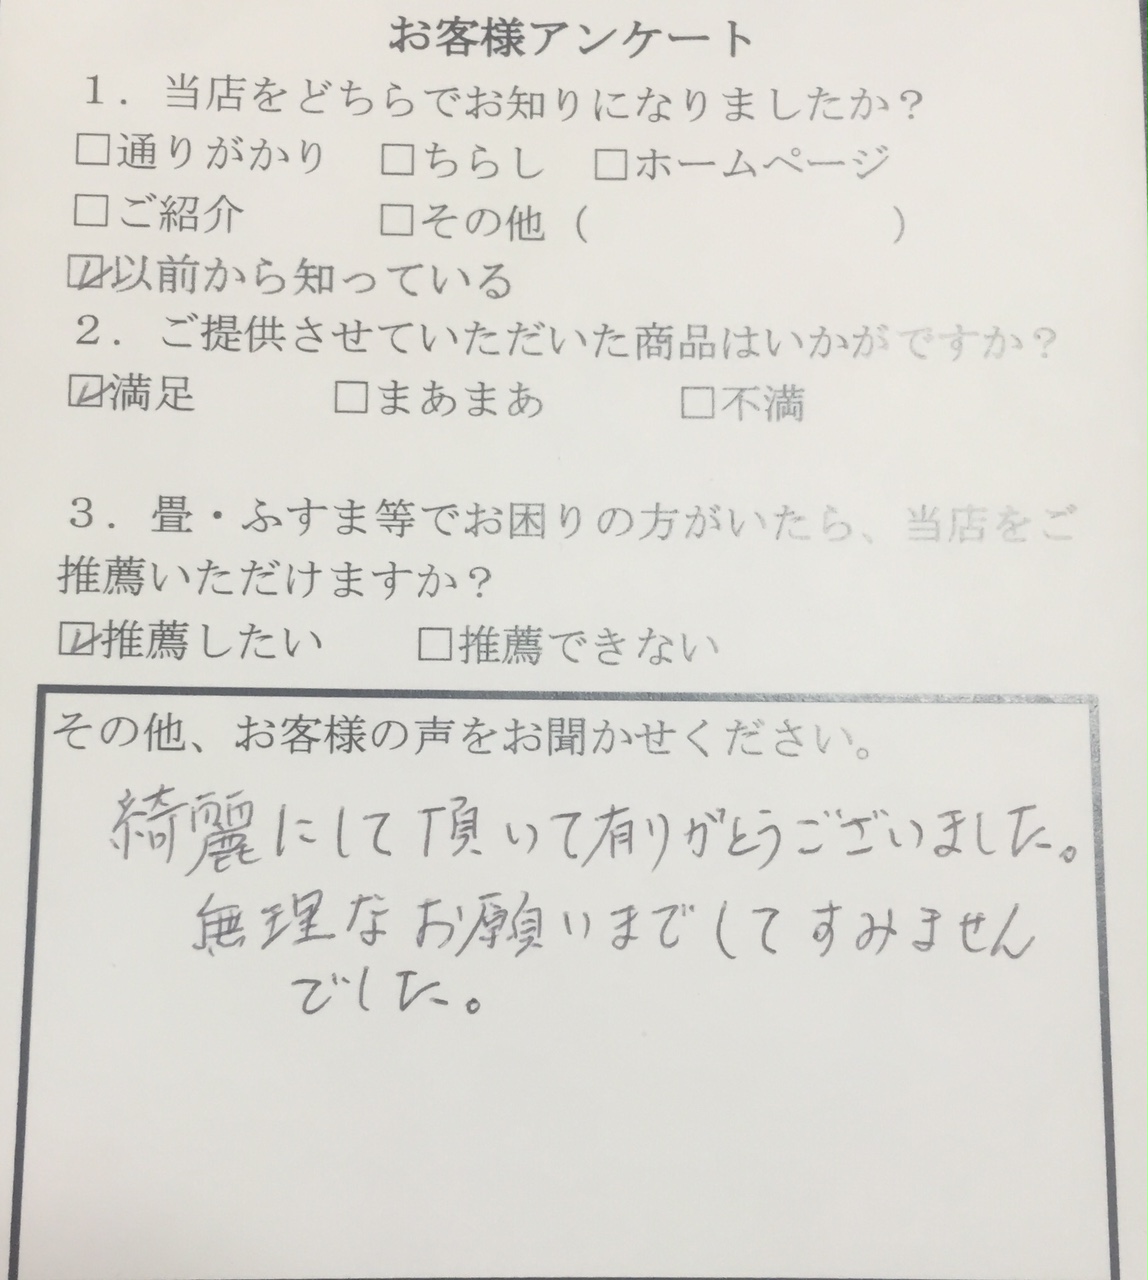 お客様アンケート
1．当店をどちらでお知りになりましたか？
□通りがかり　□ちらし　□ホームページ
□ご紹介　　　□その他（　　　　　　　）
☑以前から知っている
2．ご提供させていただいた商品はいかがですか？
☑満足　　　□まあまあ　　　□不満
3．畳・ふすま等でお困りの方がいたら、当店をご
推薦いただけますか？
☑推薦したい　　□推薦できない
その他、お客様の声をお聞かせください。
綺麗にして頂いて有りがとうございました。
無理なお願いまでしてすみません
でした。